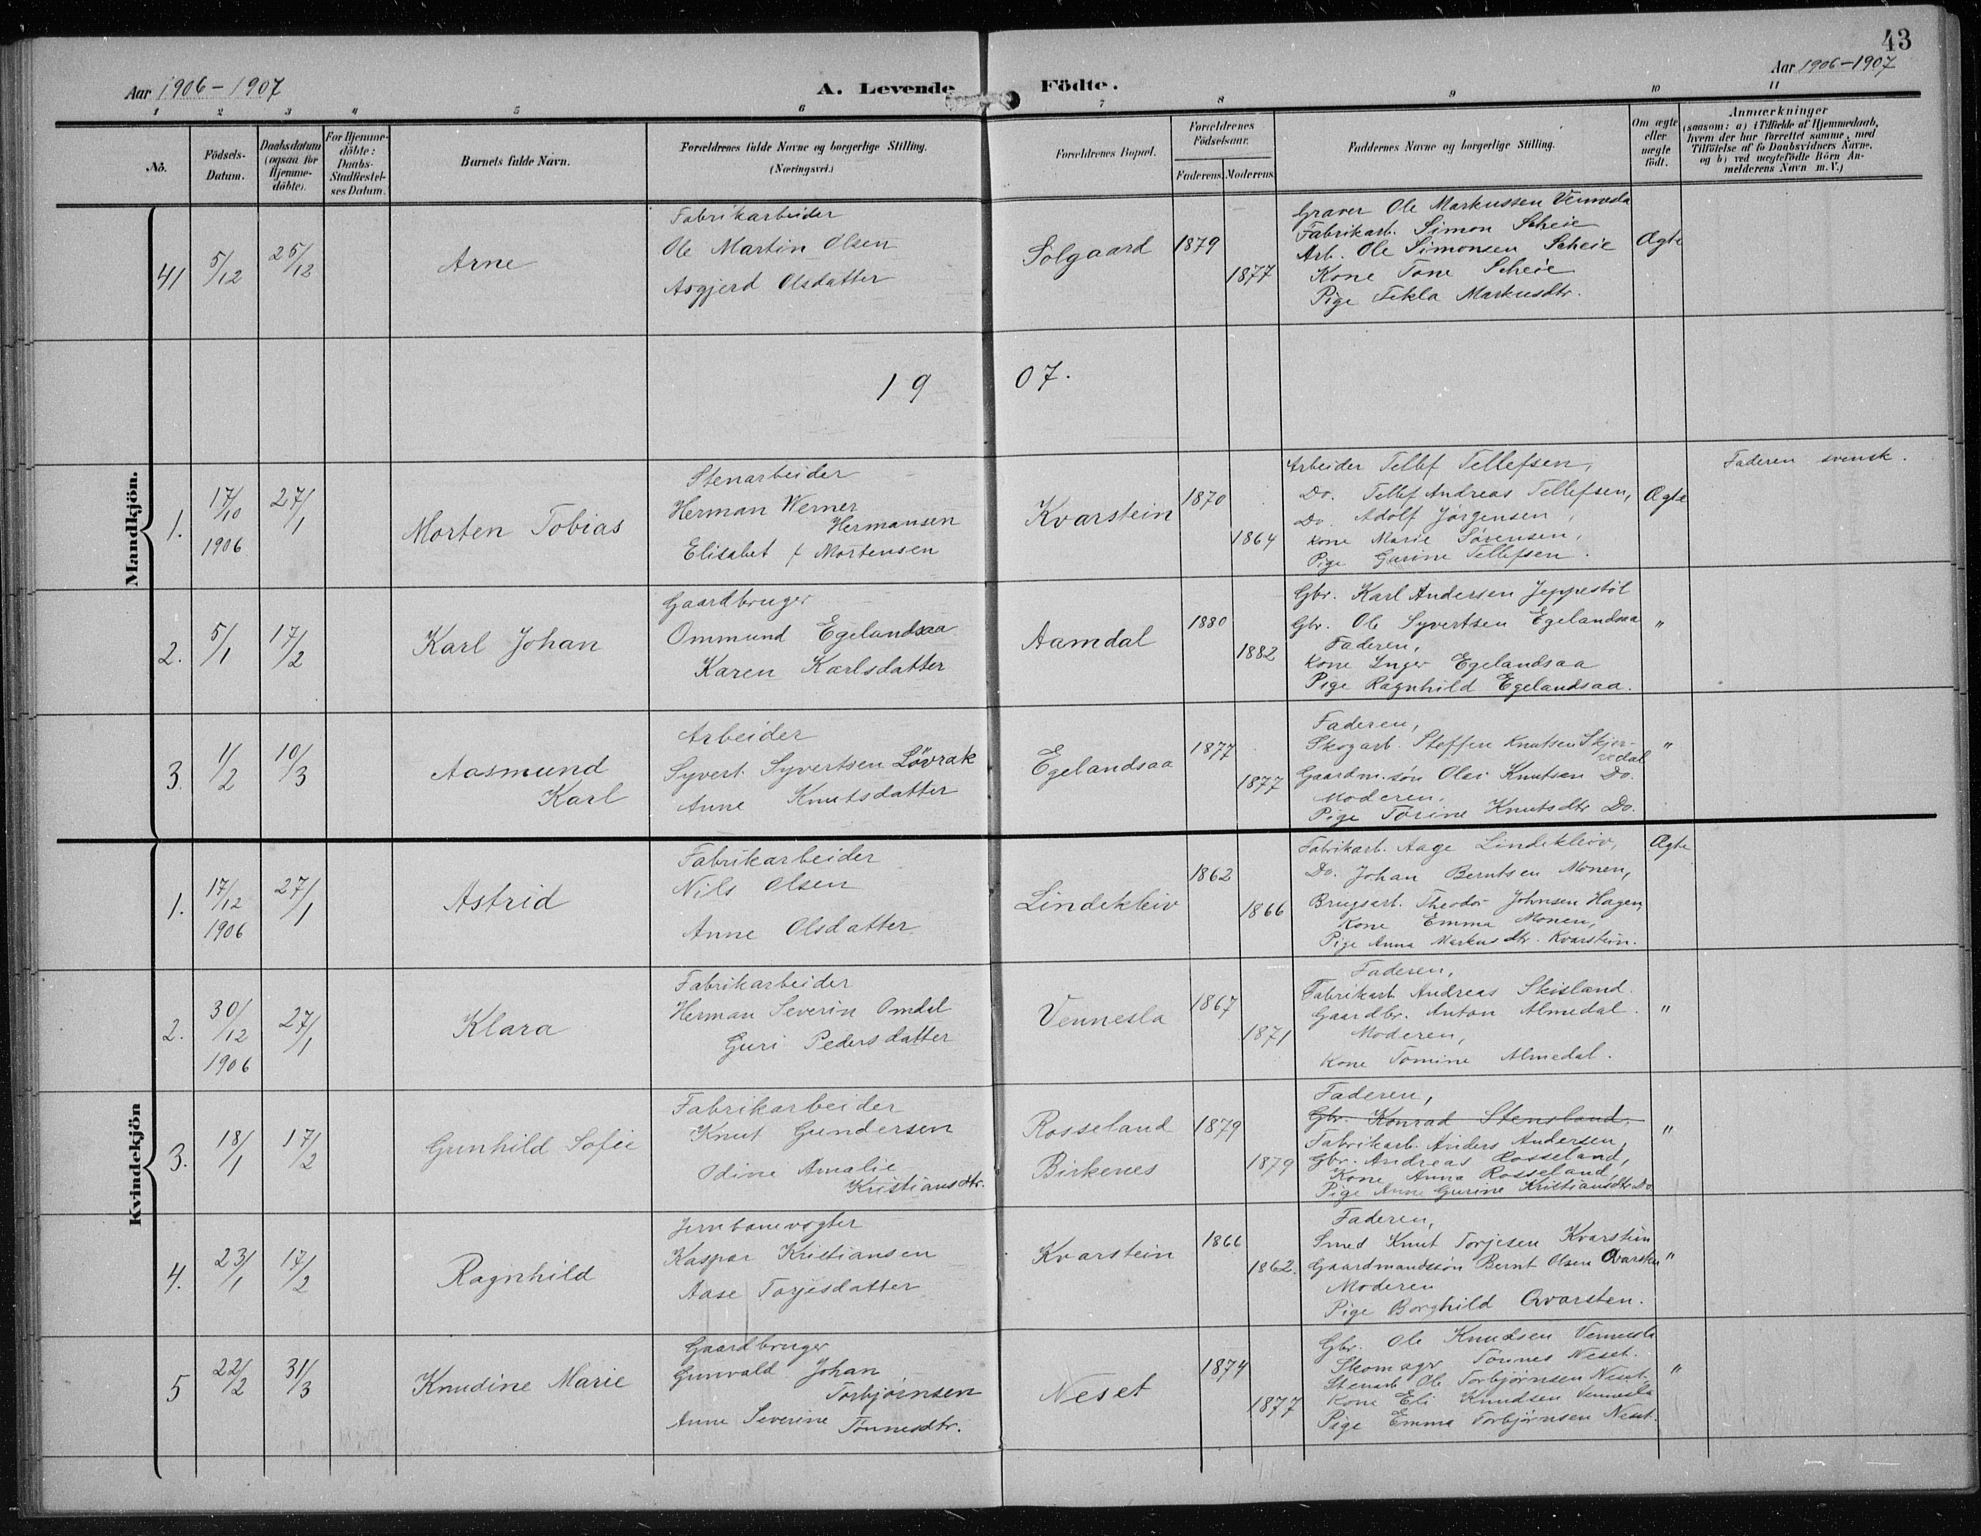 43
Aar 1906-1907
A. Levende Födte.
Aar 1906-1907
1 2 3 4 5 6 7 8 9 10 11
No.
Födsels-Datum.
Daabsdatum (ogsaa for Hjemme-döbte).
For Hjemme-döbte: Daabs-Stadfæstel-ses Datum.
Barnets fulde Navn.
Forældrenes fulde Navne og borgerlige Stilling.
(Næringsvei.)
Forældrenes Bopæl.
Forældrenes Födselsaar.
Faderens. Moderens.
Faddernes Navne og borgerlige Stilling.
Om ægte eller uægte født.
Anmærkninger
(saasom: a) i Tilfælde af Hjemmedaab, hvem der har forrettet samme, med Tilföielse af to Daabsvidners Navne, og b) ved uægtefödte Börn An-melderens Navn m. V.)
Mandkjön.
41 5/12 25/12 Arne
Fabrikarbeider
Ole Martin Olsen
Asgjerd Olsdatter
Solgaard 1879 1877
Graver Ole Markussen Vennesla
Fabrikarb. Simon Scheie
Arb. Ole Simonsen Scheie
Kone Tone Scheie
Pige Tekla Markusdtr.
Ægte
1907.
1. 17/10 1906 27/1 Morten Tobias
Stenarbeider
Herman Werner
Hermansen
Elisabet f Mortensen
Kvarstein 1870 1864
Arbeider Tellef Tellefsen,
Do. Tellef Andreas Tellefsen,
Do. Adolf Jørgensen,
Kone Marie Sørensen,
Pige Gurine Tellefsen.
Ægte
Faderen svensk.
2. 5/1 17/2 Karl Johan
Gaardbruger
Ommund Egelandsaa
Karen Karlsdatter
Aamdal 1880 1882
Gbr. Karl Andersen Jeppestøl
Gbr. Ole Syvertsen Egelandsaa
Faderen,
Kone Inger Egelandsaa
Pige Ragnhild Egelandsaa.
"
3. 1/2 10/3 Aasmund
Karl
Arbeider
Syvert Syvertsen Løvrak
Anne Knutsdatter
Egelandsaa 1877 1877
Faderen,
Skogarb. Steffen Knutsen Skjer-
redal
Gaardm.søn Olai Knutsen Do.
Moderen,
Pige Torine Knutsdtr Do.
"
Kvindekjön
1. 17/12 1906 27/1 Astrid
Fabrikarbeider
Nils Olsen
Anne Olsdatter
Lindekleiv 1862 1866
Fabrikarb. Aage Lindekleiv,
Do. Johan Berntsen Monen,
Brugsarb. Theodor Johnsen Hagen,
Kone Emma Monen,
Pige Anna Markusdtr. Kvarstein.
Ægte
2. 30/12 1906 27/1 Klara
Fabrikarbeider
Herman Severin Omdal
Guri Pedersdatter
Vennesla 1867 1871
Faderen,
Fabrikarb. Andreas Skisland.
Gaardbr. Anton Almedal.
Moderen,
Kone Tomine Almedal.
"
3. 18/1 17/2 Gunhild Sofie
Fabrikarbeider
Knut Gundersen
Odine Amalie
Kristiansdtr.
Rosseland
Birkenes
1879 1879
Faderen,
Gbr. Konrad Stensland,
Fabrikarb. Anders Andersen,
Gbr. Andreas Rosseland,
Kone Anna Rosseland,
Pige Anne Gurine Kristiansdtr Do
"
4. 23/1 17/2 Ragnhild
Jernbanevogter
Kaspar Kristiansen
Aase Torjesdatter
Kvarstein 1866 1862.
Faderen,
Smed Knut Torjesen Kvarstein
Gaardmandssøn Bernt Olsen Qvarsten
Moderen
Pige Borghild Qvarsten.
"
5 22/2 31/3 Knudine Marie
Gaardbruger
Gunvald Johan
Torbjørnsen
Anne Severine Tønnesdtr.
Neset 1874 1877
Gbr. Ole Knudsen Vennesla
Skomagr Tønnes Neset.
Stenarb Ole Torbjørnsen Neset.
Kone Eli Knudsen Vennesla
Pige Emma Torbjørnsen Neset.
"